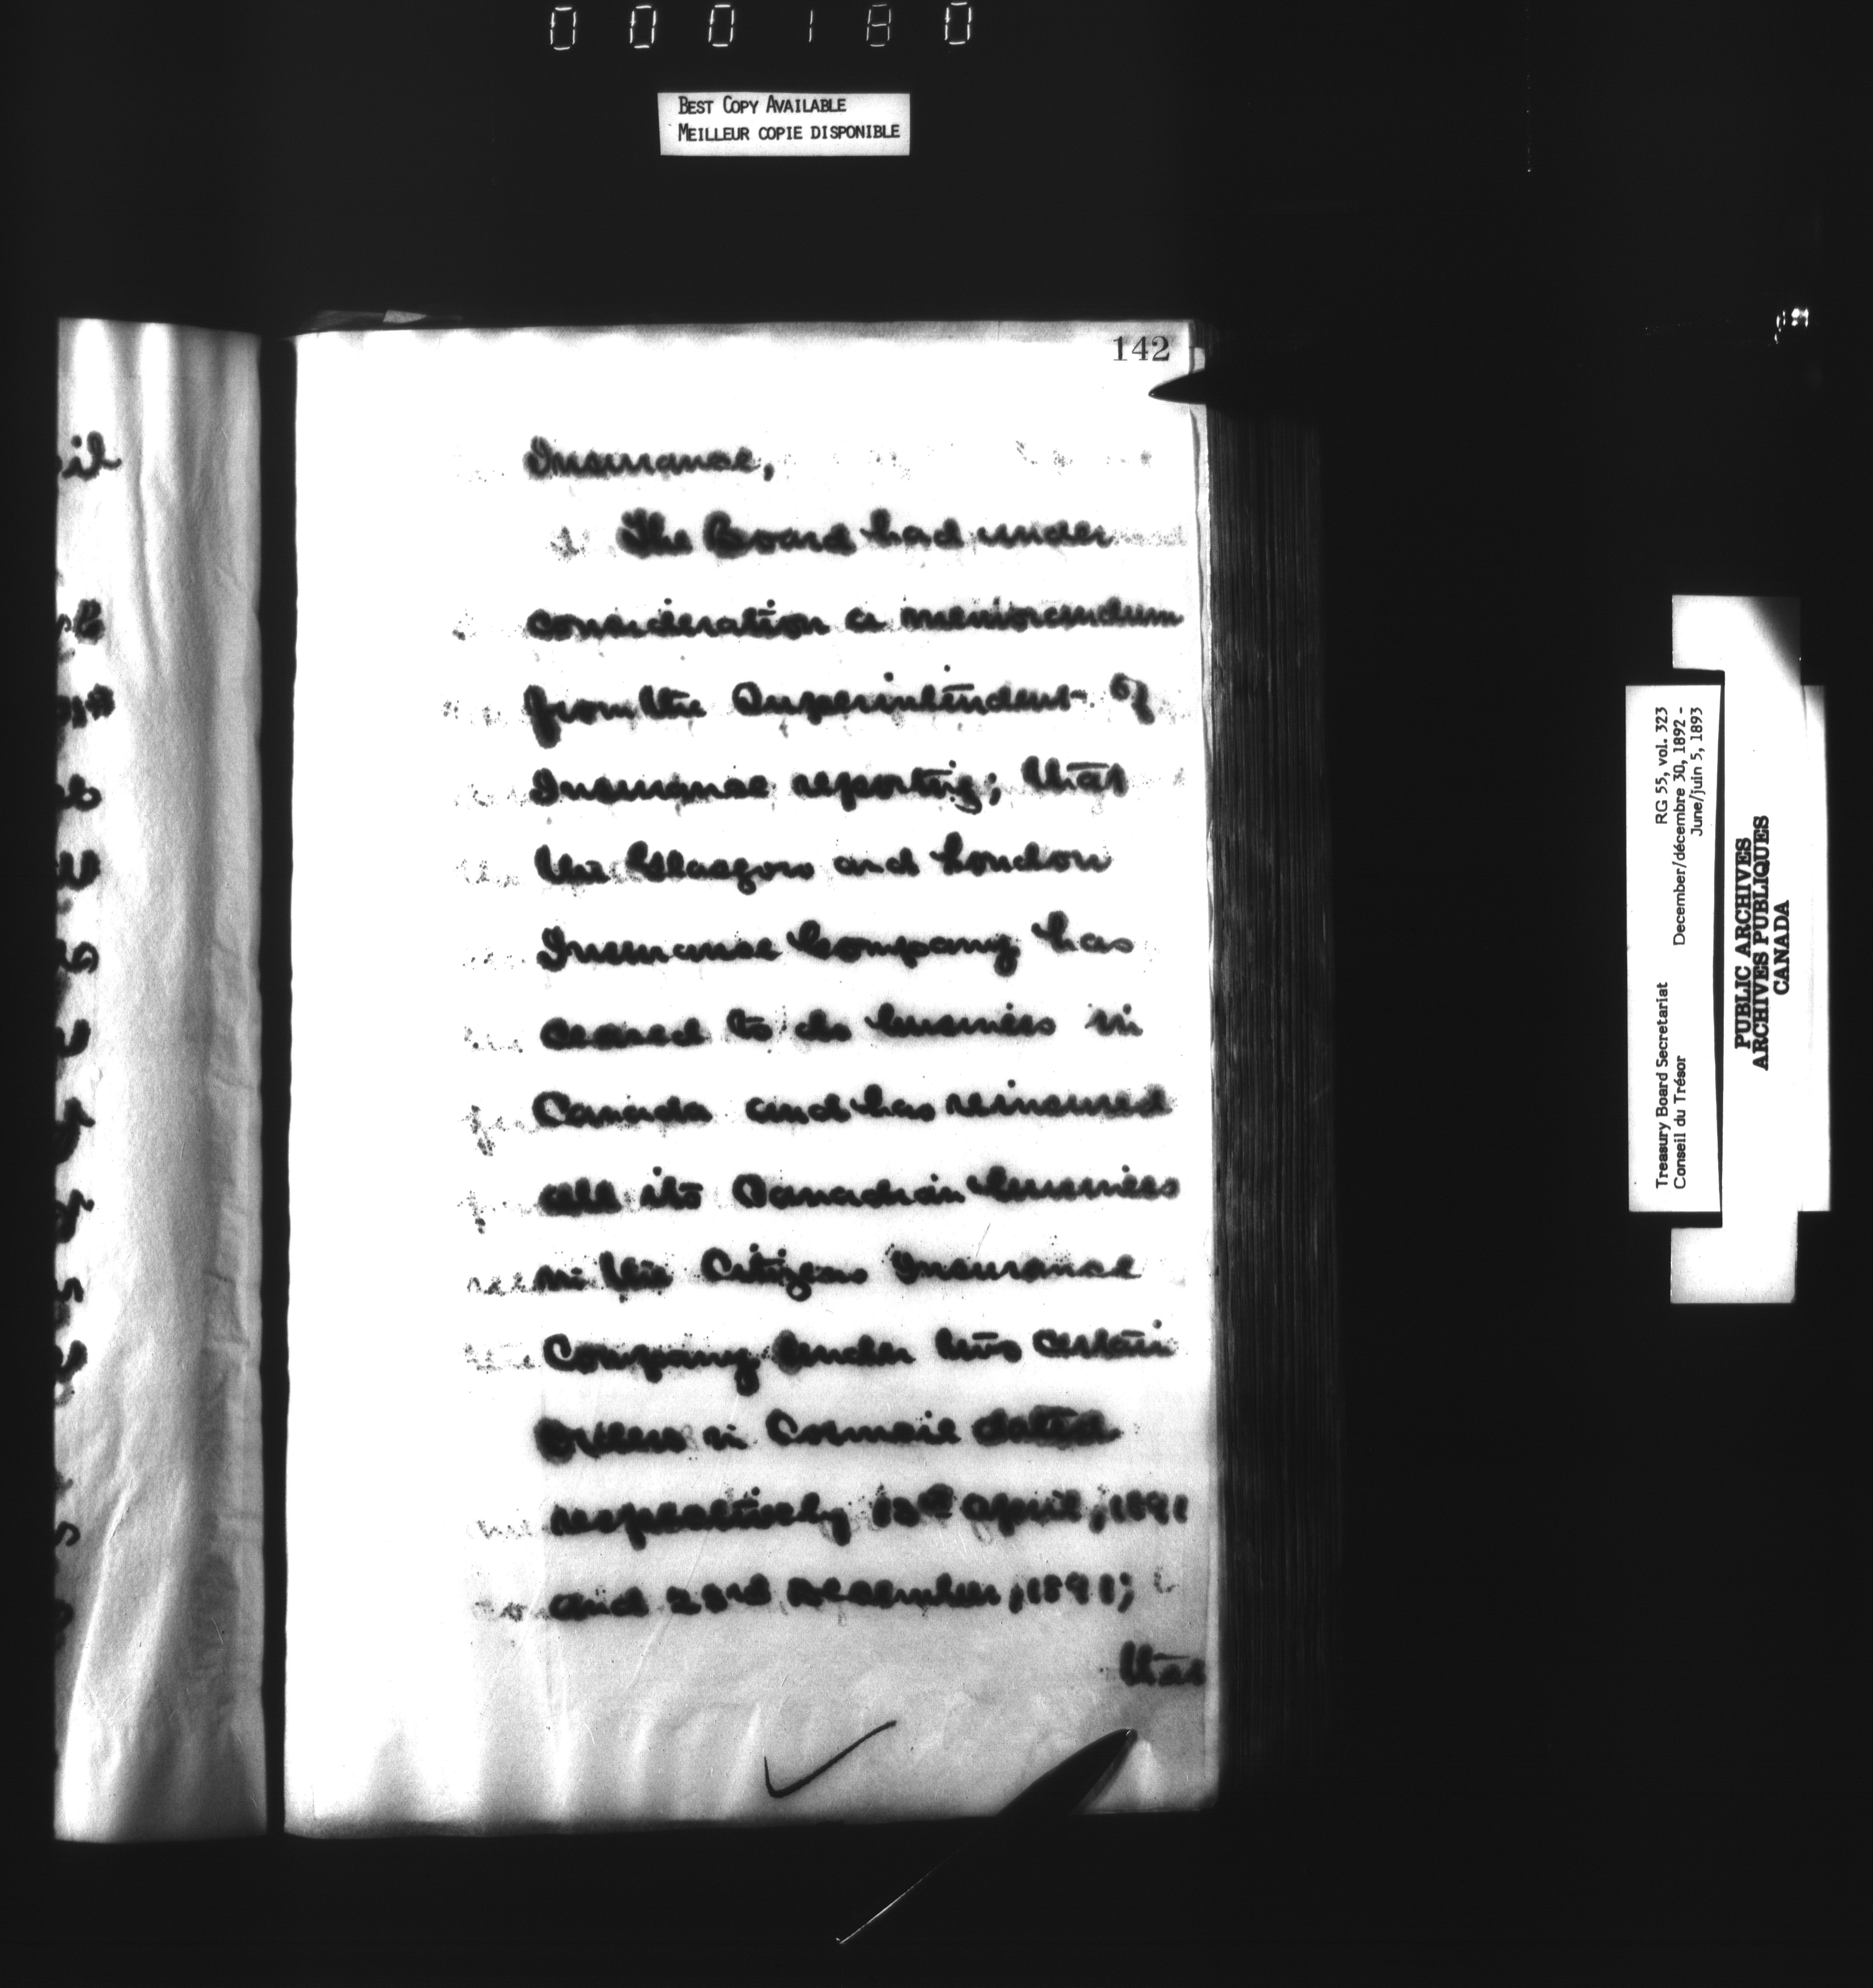 000180
BEST COPY AVAILABLE
MEILLEUR COPIE DISPONIBLE
142
Insurance,
The Board had under
consideration a memorandum
from the Superintendent of
Insurance reporting; that
the Glasgow and London
Insurance Company has
ceased to do business in
Canada and has reinsured
all its Canadian business
in the Citizens Insurance
Company under two certain
Orders in Council dated
respectively April, 1891
and 23rd December, 1891;
that
Treasury Board Secretariat RG 55, vol. 323
Conseil du Trésor December/décembre 30, 1892 -
June/juin 5, 1893
PUBLIC ARCHIVES
ARCHIVES PUBLIQUES
CANADA